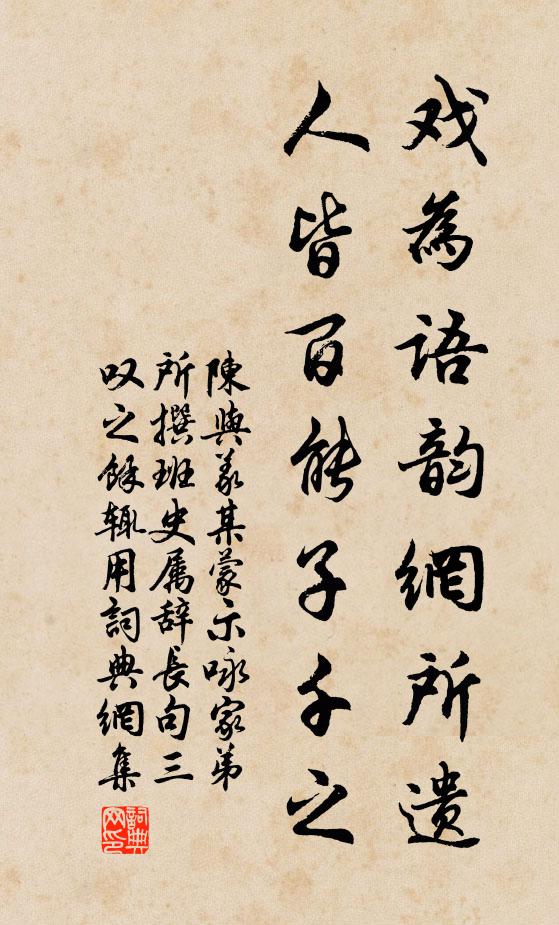 戏為語韵網所遗
人皆百能子千之
陳與義某蒙示咏家弟
所撰班史属辞長句三
叹之餘辄用詞典網集
詞典网印